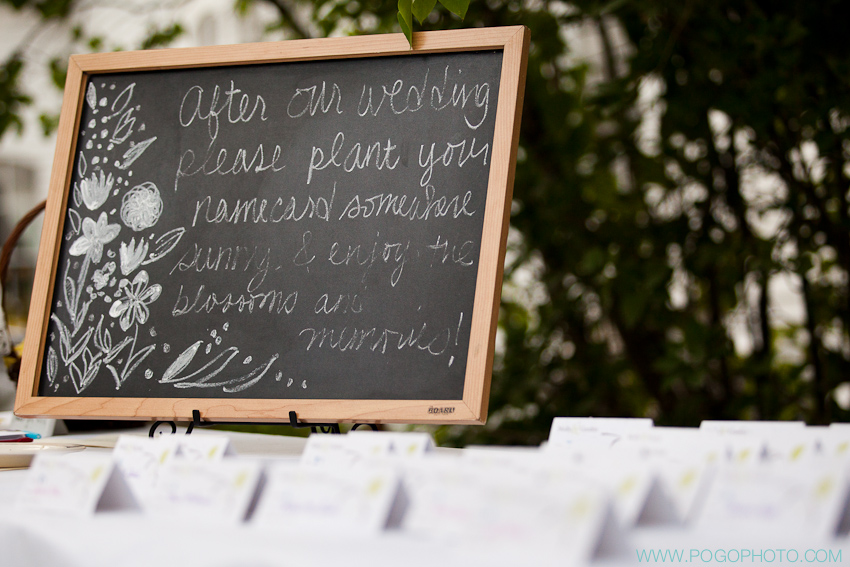 After our wedding
please plant your
namecard somewhere
sunny & enjoy the
blossoms and
memories!
BOARD
WWW.POGOPHOTO.COM